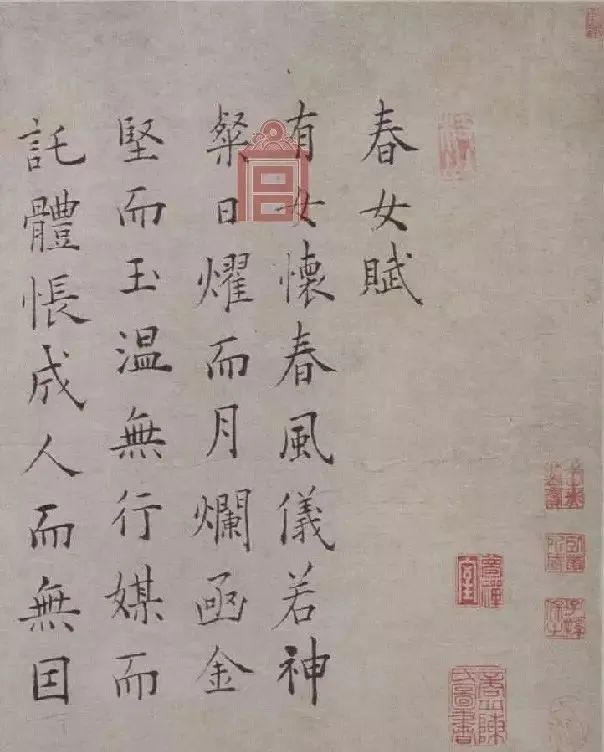 春女賦
有女懷春風儀若神
粲日燿而月爛函金
堅而玉温無行媒而
託體悵成人而無因